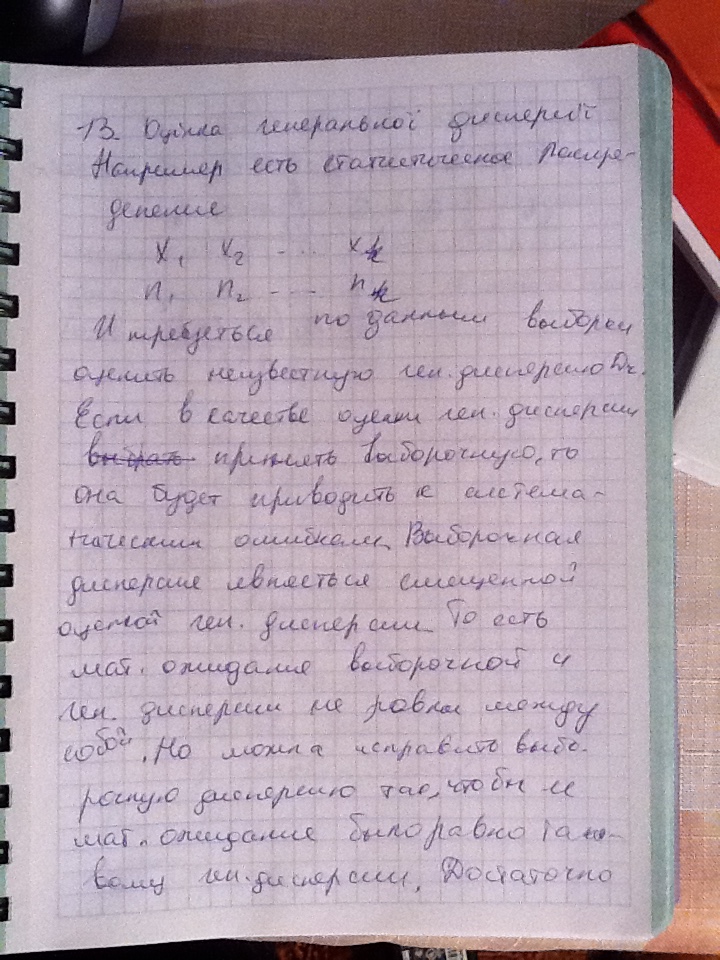 13. Оценка генеральной дисперсии
Например есть статистическое распре-
деление
x₁ x₂ ... xₖ
n₁ n₂ ... nₖ
И требуется по данным выборки
оценить неизвестную ген. дисперсию Dг.
Если в качестве оценки ген. дисперсии
принять выборочную, то
она будет приводить к система-
тическим ошибкам, Выборочная
дисперсие является смещенной
оценкой ген. дисперсии То есть
мат. ожидание выборочной и
ген. дисперсии не равны между
собой, Но, можна исправить выбо-
рочную дисперсию так, чтобы ее
мат. ожидание было равно
ген. дисперсии, Достаточно